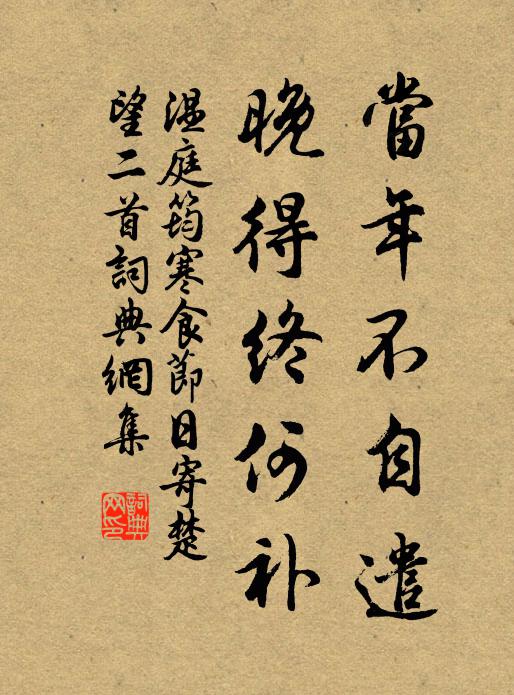 當年不自遣
晚得終何补
温庭筠寒食節日寄楚
望二首詞典網集
詞典网印